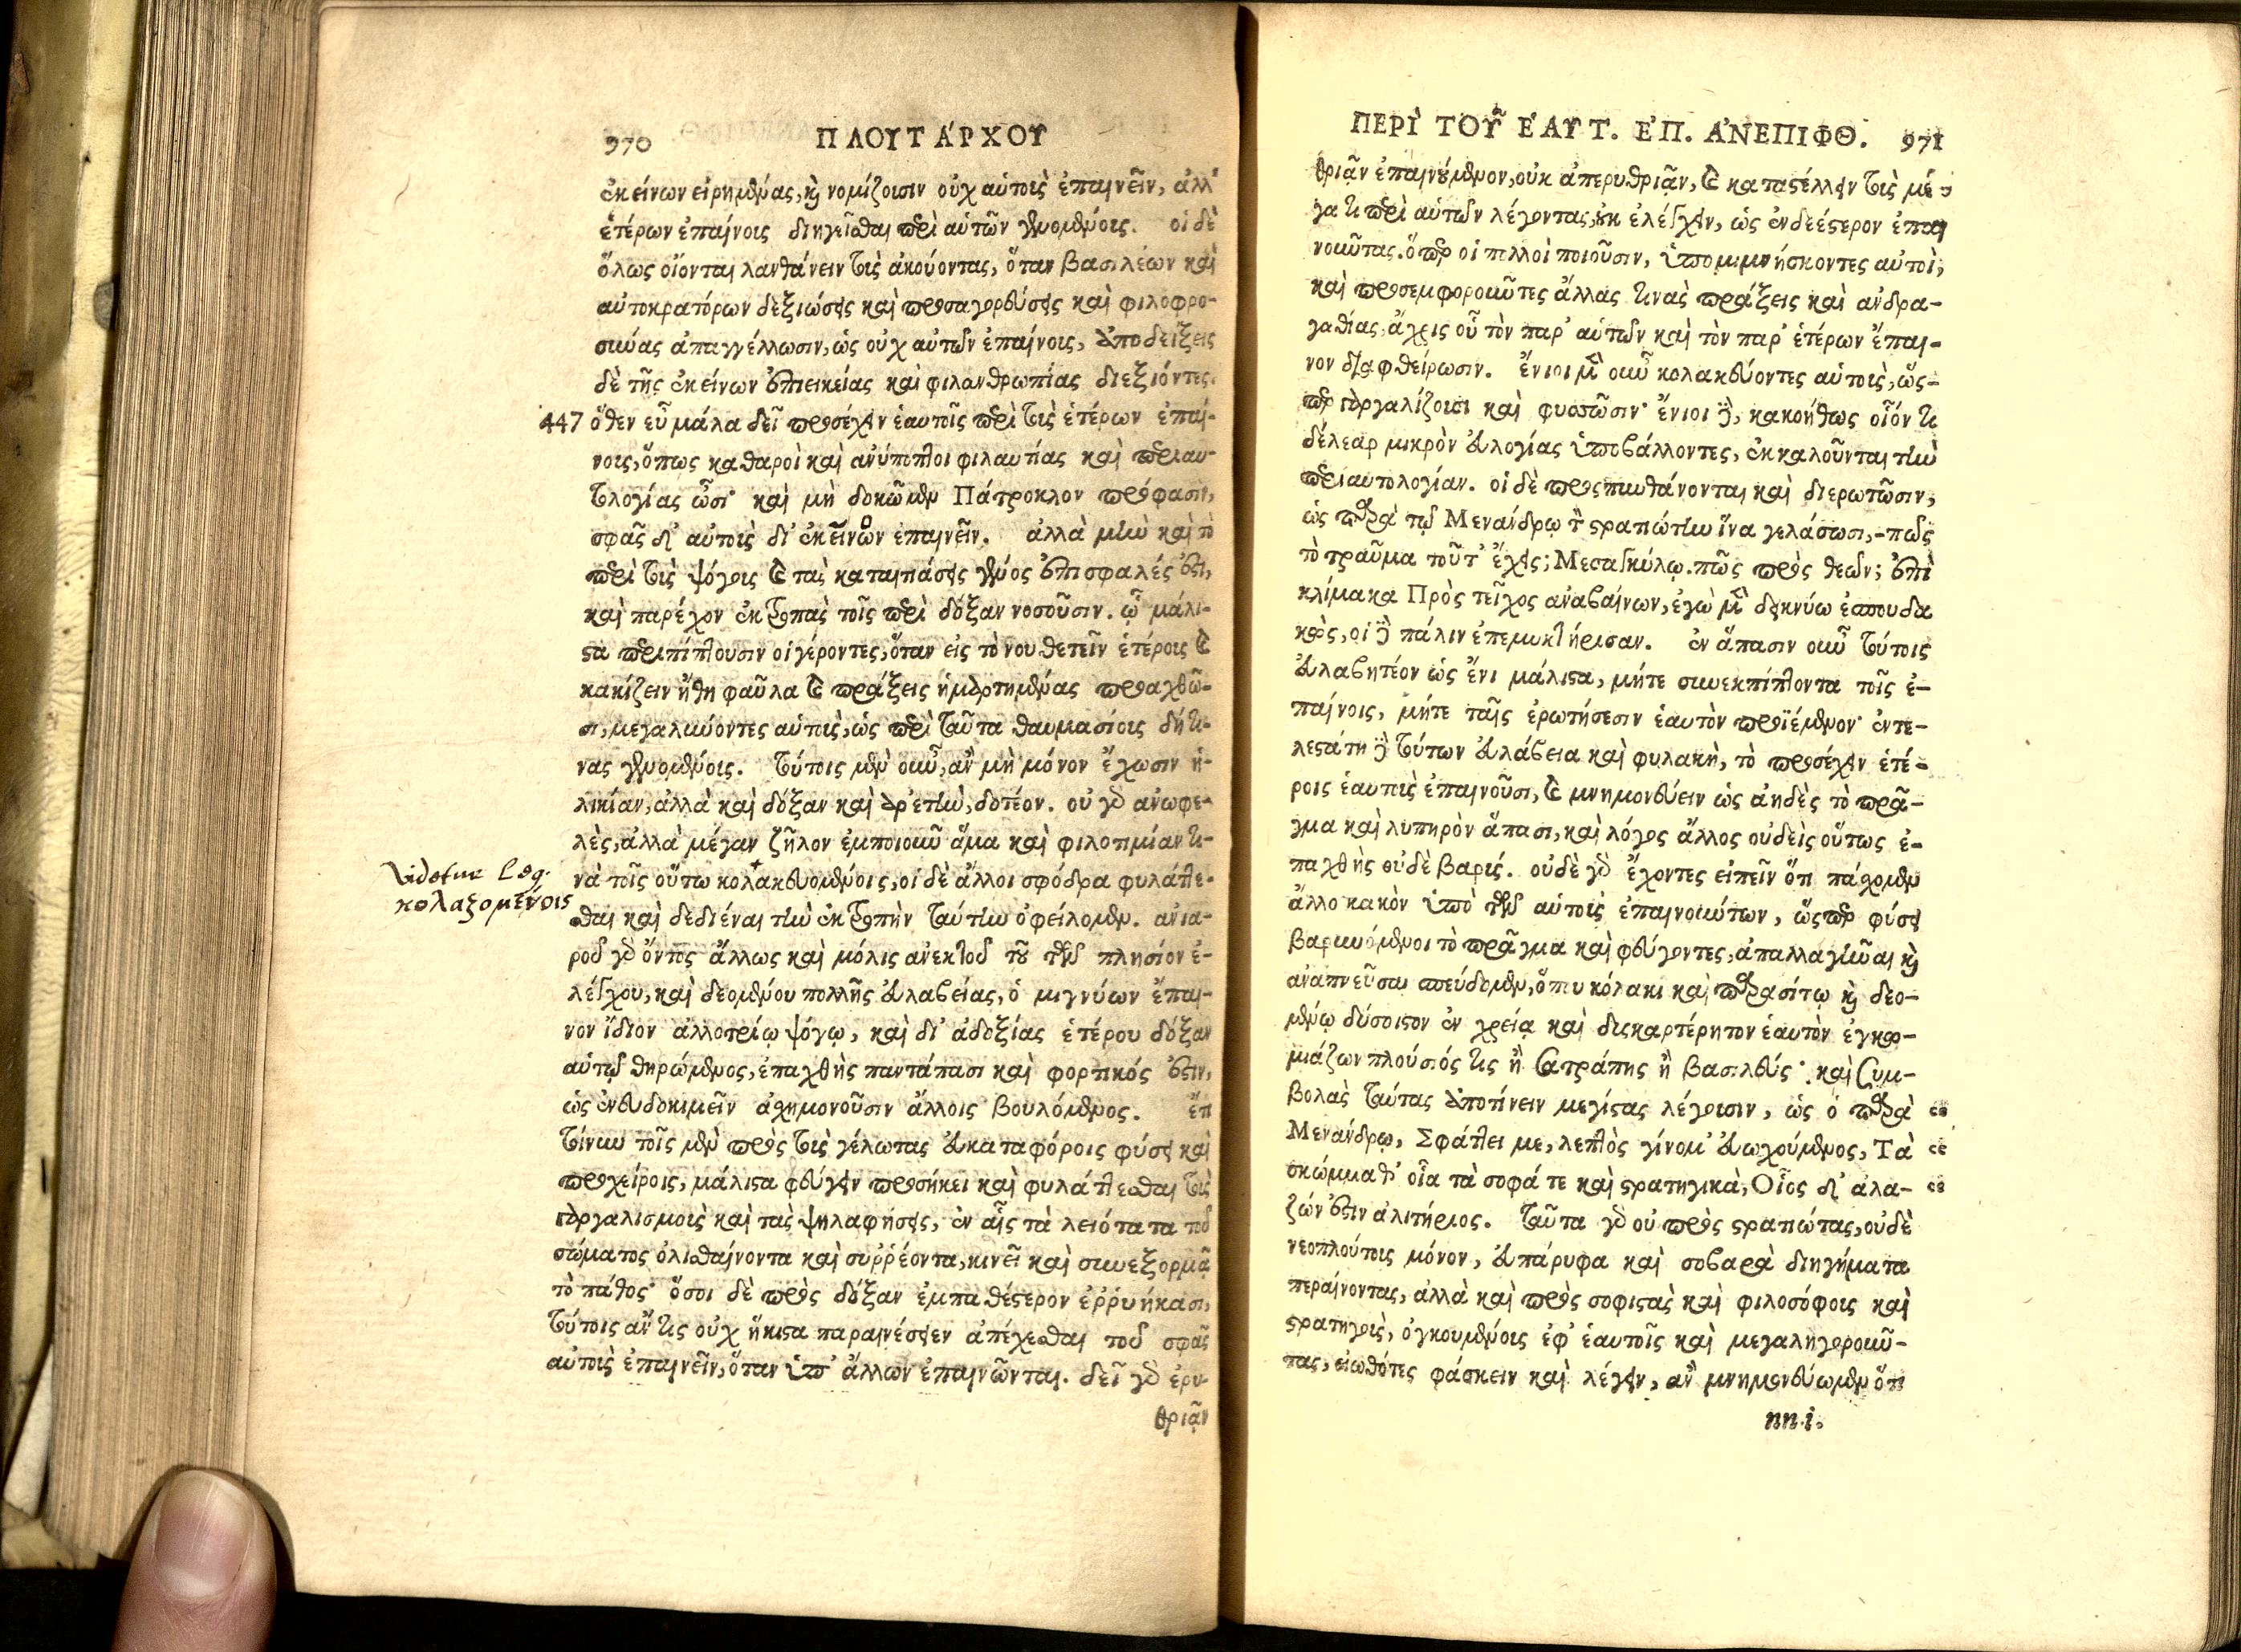 970 ΠΛΟΥΤΑΡΧΟΥ
ἐκείνων εἰρημένας, καὶ νομίζουσιν οὐχ αὑτοὺς ἐπαινεῖν, ἀλλ᾽
ἑτέρων ἐπαίνοις διηγεῖσθαι περὶ αὑτῶν γενομένοις. οἱ δὲ
ὅλως οἴονται λανθάνειν τοὺς ἀκούοντας, ὅταν βασιλέων καὶ
αὐτοκρατόρων δεξιώσεις καὶ προσαγορεύσεις καὶ φιλοφρο-
σύνας ἀπαγγέλλωσιν, ὡς οὐχ αὑτῶν ἐπαίνους, ἀποδείξεις
δὲ τῆς ἐκείνων ἐπιεικείας καὶ φιλανθρωπίας διεξιόντες.
447 ὅθεν εὖ μάλα δεῖ προσέχειν ἑαυτοῖς περὶ τοὺς ἑτέρων ἐπαί-
νους, ὅπως καθαροὶ καὶ ἀνύποπτοι φιλαυτίας καὶ περιαυ-
τολογίας ὦσι· καὶ μὴ δοκῶμεν Πάτροκλον πρόφασιν,
σφᾶς δ᾽ αὐτοὺς δι᾽ ἐκείνων ἐπαινεῖν. ἀλλὰ μὴν καὶ τὸ
περὶ τοὺς ψόγους καὶ τὰς καταιτιάσεις γένος ἐπισφαλές ἐστι,
καὶ παρέχον ἐκτροπὰς τοῖς περὶ δόξαν νοσοῦσιν. ᾧ μάλι-
στα περιπίπτουσιν οἱ γέροντες, ὅταν εἰς τὸ νουθετεῖν ἑτέρους καὶ
κακίζειν ἤθη φαῦλα καὶ πράξεις ἡμαρτημένας προαχθῶ-
σι, μεγαλύνοντες αὑτοὺς, ὡς περὶ ταῦτα θαυμασίους δή τι-
νας γενομένους. τούτοις μὲν οὖν, ἂν μὴ μόνον ἔχωσιν ἡ-
λικίαν, ἀλλὰ καὶ δόξαν καὶ ἀρετὴν, δοτέον. οὐ γὰρ ἀνωφε-
λὲς, ἀλλὰ μέγαν ζῆλον ἐμποιοῦν ἅμα καὶ φιλοτιμίαν τι-
νὰ τοῖς οὕτω κολακευομένοις, οἱ δὲ ἄλλοι σφόδρα φυλάττε-
Videtur leg.
κολαζομένοις
σθαι καὶ δεδιέναι τὴν ἐκτροπὴν ταύτην ὀφείλομεν. ἀνια-
ροῦ γὰρ ὄντος ἄλλως καὶ μόλις ἀνεκτοῦ τοῦ τῶν πλησίον ἐ-
λέγχου, καὶ δεομένου πολλῆς εὐλαβείας, ὁ μιγνύων ἔπαι-
νον ἴδιον ἀλλοτρίῳ ψόγῳ, καὶ δι᾽ ἀδοξίας ἑτέρου δόξαν
αὑτῷ θηρώμενος, ἐπαχθὴς παντάπασι καὶ φορτικός ἐστιν,
ὡς ἐνευδοκιμεῖν ἀσχημονοῦσιν ἄλλοις βουλόμενος. ἔτι
τοίνυν τοῖς μὲν πρὸς τοὺς γέλωτας εὐκαταφόροις φύσει καὶ
προχείροις, μάλιστα φεύγειν προσήκει καὶ φυλάττεσθαι τοὺς
γαργαλισμοὺς καὶ τὰς ψηλαφήσεις, ἐν αἷς τὰ λειότατα τοῦ
σώματος ὀλισθαίνοντα καὶ συῤῥέοντα, κινεῖ καὶ συνεξορμᾷ
τὸ πάθος· ὅσοι δὲ πρὸς δόξαν ἐμπαθέστερον ἐῤῥυήκασι,
τούτοις ἄν τις οὐχ ἥκιστα παραινέσειεν ἀπέχεσθαι τοῦ σφᾶς
αὐτοὺς ἐπαινεῖν, ὅταν ὑπ᾽ ἄλλων ἐπαινῶνται. δεῖ γὰρ ἐρυ-
θριᾷν
ΠΕΡῚ ΤΟΥ͂ ἙΑΥΤ. ἘΠ. ἈΝΕΠΙΦΘ. 971
θριᾷν ἐπαινούμενον, οὐκ ἀπερυθριᾷν, καὶ καταστέλλειν τοὺς μέ-
γα τι περὶ αὑτῶν λέγοντας, οὐκ ἐλέγχειν, ὡς ἐνδεέστερον ἐπαι
νοῦντας. ὅπερ οἱ πολλοὶ ποιοῦσιν, ὑπομιμνήσκοντες αὐτοὶ,
καὶ προσεμφοροῦντες ἄλλας τινὰς πράξεις καὶ ἀνδρα-
γαθίας, ἄχρις οὗ τὸν παρ᾽ αὑτῶν καὶ τὸν παρ᾽ ἑτέρων ἔπαι-
νον διαφθείρωσιν. ἔνιοι μὲν οὖν κολακεύοντες αὑτοὺς, ὥς-
περ γαργαλίζουσι καὶ φυσῶσιν· ἔνιοι δὲ, κακοήθως οἷόν τι
δέλεαρ μικρὸν εὐλογίας ὑποβάλλοντες, ἐκκαλοῦνται τὴν
περιαυτολογίαν. οἱ δὲ προσπυνθάνονται καὶ διερωτῶσιν,
ὡς παρὰ τῷ Μενάνδρῳ τὸν στρατιώτην ἵνα γελάσωσι, -πῶς
τὸ τραῦμα τοῦτ᾽ ἔχεις; Μεσαγκύλῳ. πῶς πρὸς θεῶν; ἐπὶ
κλίμακα Πρὸς τεῖχος ἀναβαίνων, ἐγὼ μὲν δεικνύω ἐσπουδα
κὼς, οἱ δὲ πάλιν ἐπεμυκτήρισαν. ἐν ἅπασιν οὖν τούτοις
εὐλαβητέον ὡς ἔνι μάλιστα, μήτε συνεκπίπτοντα τοῖς ἐ-
παίνοις, μήτε ταῖς ἐρωτήσεσιν ἑαυτὸν προϊέμενον· ἐντε-
λεστάτη δὲ τούτων εὐλάβεια καὶ φυλακὴ, τὸ προσέχειν ἑτέ-
ροις ἑαυτοὺς ἐπαινοῦσι, καὶ μνημονεύειν ὡς ἀηδὲς τὸ πρᾶ-
γμα καὶ λυπηρὸν ἅπασι, καὶ λόγος ἄλλος οὐδεὶς οὕτως ἐ-
παχθὴς οὐδὲ βαρύς. οὐδὲ γὰρ ἔχοντες εἰπεῖν ὅτι πάσχομεν
ἄλλο κακὸν ὑπὸ τῶν αὑτοὺς ἐπαινούντων, ὥςπερ φύσει
βαρυνόμενοι τὸ πρᾶγμα καὶ φεύγοντες, ἀπαλλαγῆναι καὶ
ἀναπνεῦσαι σπεύδομεν, ὅπου κόλακι καὶ παρασίτῳ καὶ δεο-
μένῳ δύσοιστον ἐν χρείᾳ καὶ δυςκαρτέρητον ἑαυτὸν ἐγκω-
μιάζων πλούσιός τις ἢ σατράπης ἢ βασιλεύς· καὶ συμ-
βολὰς ταύτας ἀποτίνειν μεγίστας λέγουσιν, ὡς ὁ παρὰ
Μενάνδρῳ, Σφάττει με, λεπτὸς γίνομ᾽ εὐωχούμενος, Τὰ
σκώμμαθ᾽ οἷα τὰ σοφά τε καὶ στρατηγικὰ, Οἷος δ᾽ ἀλα-
ζών ἐστιν ἁλιτήριος. ταῦτα γὰρ οὐ πρὸς στρατιώτας, οὐδὲ
νεοπλούτους μόνον, εὐπάρυφα καὶ σοβαρὰ διηγήματα
περαίνοντας, ἀλλὰ καὶ πρὸς σοφιστὰς καὶ φιλοσόφους καὶ
στρατηγοὺς, ὀγκουμένους ἐφ᾽ ἑαυτοῖς καὶ μεγαληγοροῦν-
τας, εἰωθότες φάσκειν καὶ λέγειν, ἂν μνημονεύωμεν ὅτι
nn.i.